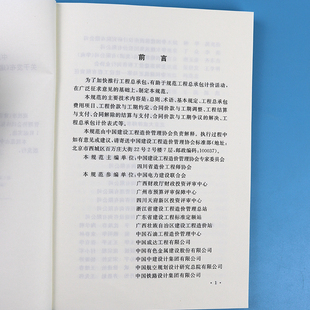 前 言
为了加快推行工程总承包,有助于规范工程总承包计价活动,
在广泛征求意见的基础上,制定本规范。
本规范的主要技术内容是:总则、术语、基本规定、工程总承包
费用项目、工程价款与工期约定、合同价款与工期调整、工程结算
与支付、合同解除的结算与支付、合同价款与工期争议的解决、工
程总承包计价表式等。
本规范由中国建设工程造价管理协会负责解释。执行过程中
如有意见或建议,请寄送中国建设工程造价管理协会标准部(地址:
北京市西城区百万庄大街22号2号楼7层,邮政编码:100037)。
本规范主编单位:中国建设工程造价管理协会专家委员会
四川省造价工程师协会
本规范参编单位:中国电力建设联合会
广西财政厅财政投资评审中心
广州市财政投资评审中心
四川天府新区投资评审中心
浙江省建设工程造价管理总站
广东省建设工程标准定额站
广西壮族自治区建设工程造价总站
中国石油工程造价管理中心
中国成达工程有限公司
中国有色金属建设股份有限公司
中国中建设计集团有限公司
中国航空规划设计研究总院有限公司
中国铁路设计集团有限公司
· 1 ·